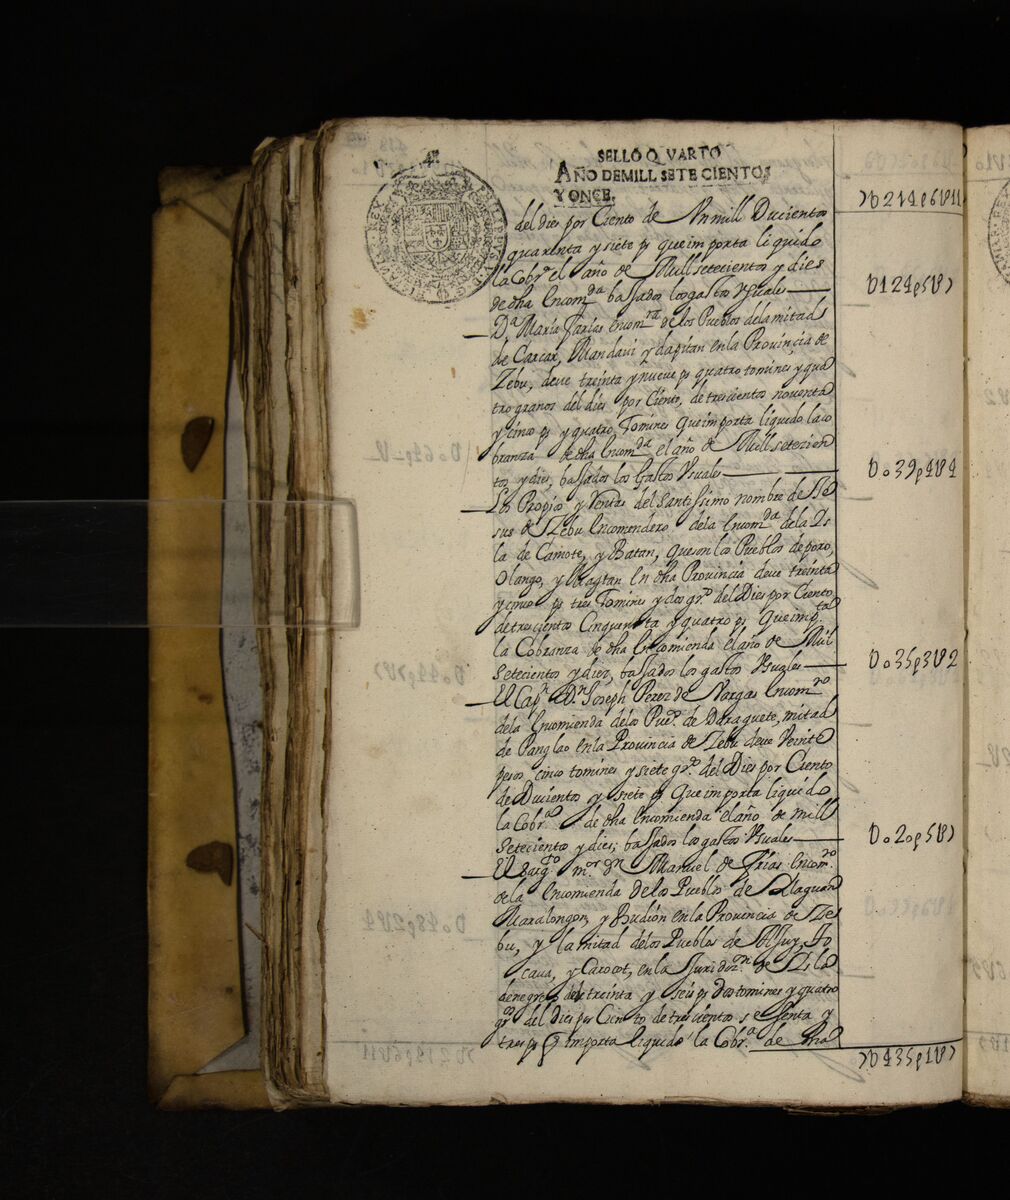 SELLO QVARTO
AÑO DEMILL SETECIENTOS
Y ONCE.
PHILIPPVS V D G
del dies por Ciento de Vnmill Ducientos
quarenta y siete ps que importa liquido
la Cobra el año de Mill setecientos y dies
de dha Encomda baxados los gastos Vsuales
Da Maria farias Encomra de los Pueblos dela mitad
de Carcar, Mandaui y dapitan en la Prouincia de
Zebu, deve treinta y nueve ps quatro tomines y qua
tro granos del dies por Ciento, de trescientos noventa
y cinco ps y quatro Tomines Que importa liquido laco
branza de dha Encomda el año de Mill setezien
tos y dies, baxados los Gastos Vsuales
Los Propios y Rentas del Santissimo nombre de Je
sus de Zebu Encomendero dela Encomda dela Is
la de Camote, y Batan, que son los Pueblos de poro,
Olango, y Magtan en dha Prouincia deve treinta
y cinco ps tres Tomines y dos gros del Dies por Ciento
de trescientos Cinquenta y quatro ps Que imp.ta
la Cobranza de dha Encomienda el año de Mill
Setecientos y diez, baxados los gastos Vsuales
El Capn Dn Joseph Perez de Vargas Encomro
dela Encomienda delos Pueos de Daraguete, mitad
de Panglao en la Prouincia de Zebu deve Veinte
pesos cinco tomines y siete gros del Dies por Ciento
de Ducientos y siete ps Que importa liquido
la Cobrza de dha Encomienda el año de mill
Setecientos y dies, baxados los gastos Vsuales
El Sargto mor Dn Manuel de Frias Encomro
de la Encomienda de los Pueblos de
Maralongon, y Budion en la Prouincia de Ze
bu, y la mitad delos Pueblos de Ylo
caua, y Carocot, en la Juridizon de Isla
de negros deve treinta y seis ps dos tomines y quatro
gros del Dies por Ciento de trescientos sesenta y
tres ps q importa liquido la Cobrza de dha
U214p6U11
U124p5U7
Uo39p4U4
Uo35p3U2
Uo20p5U7
U435p1U7